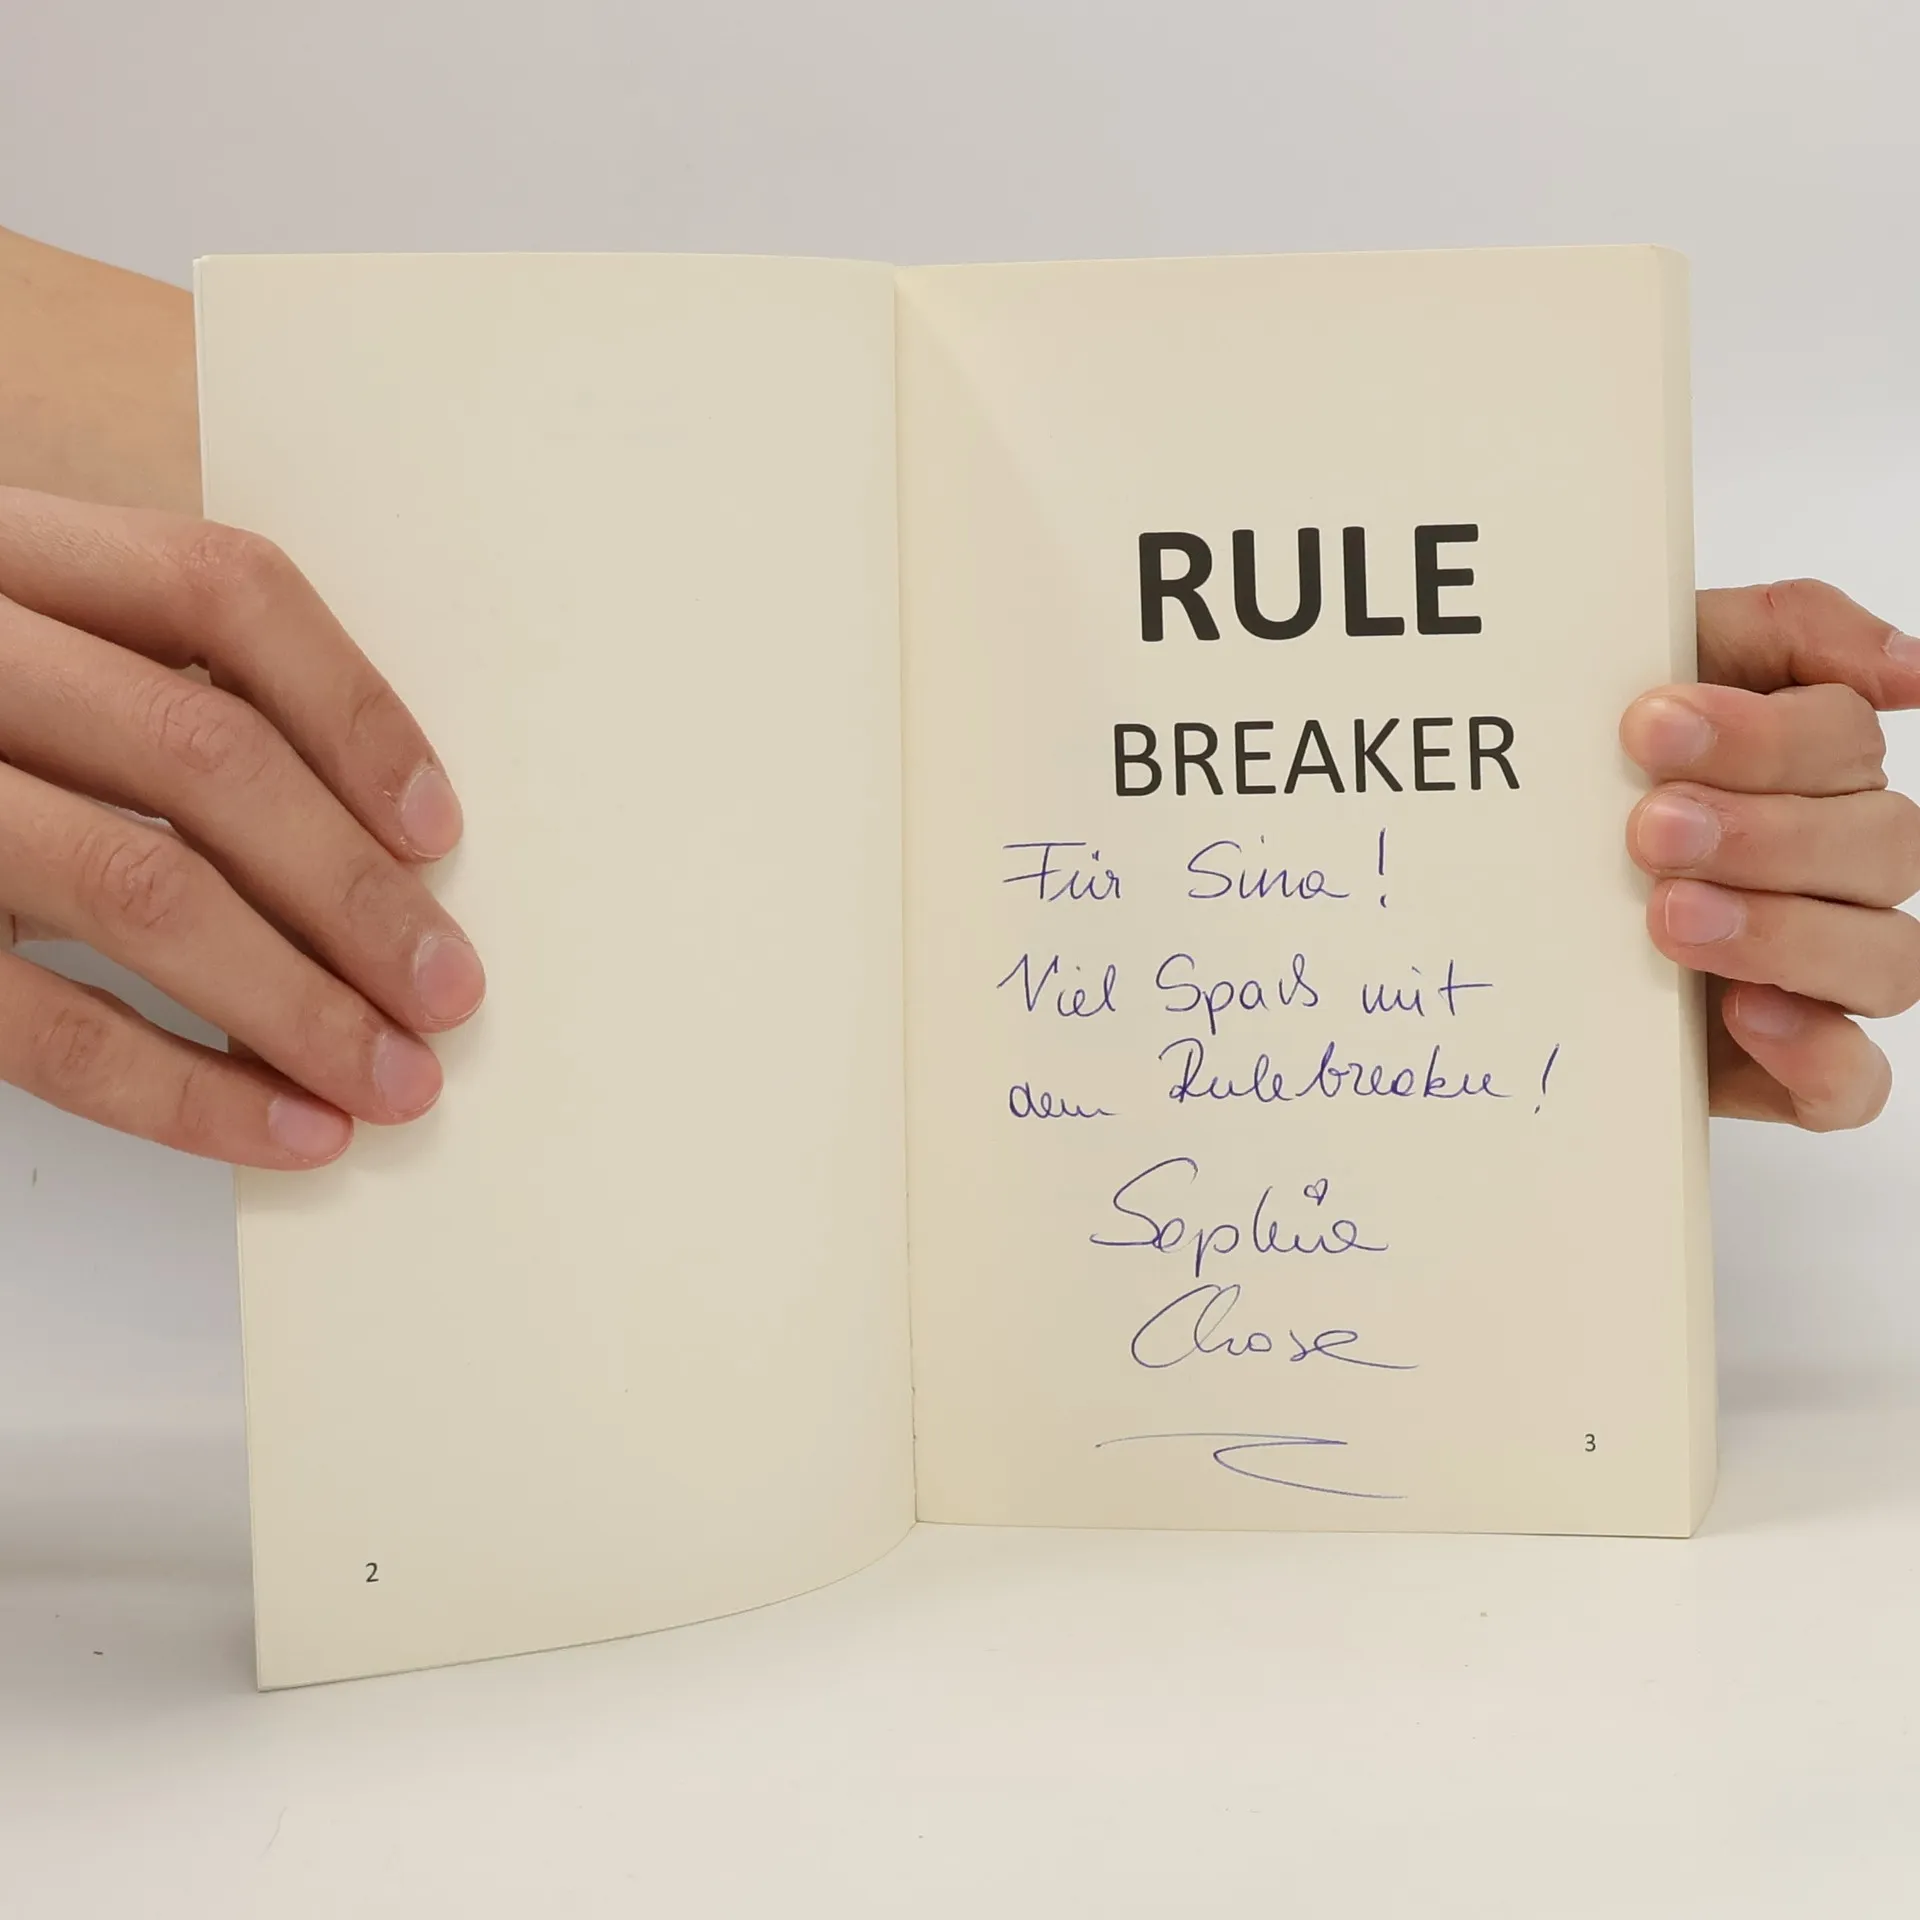 RULE
BREAKER
Für Sina!
Viel Spaß mit
dem Rulebreaker!
Sophia
Chase
3
2